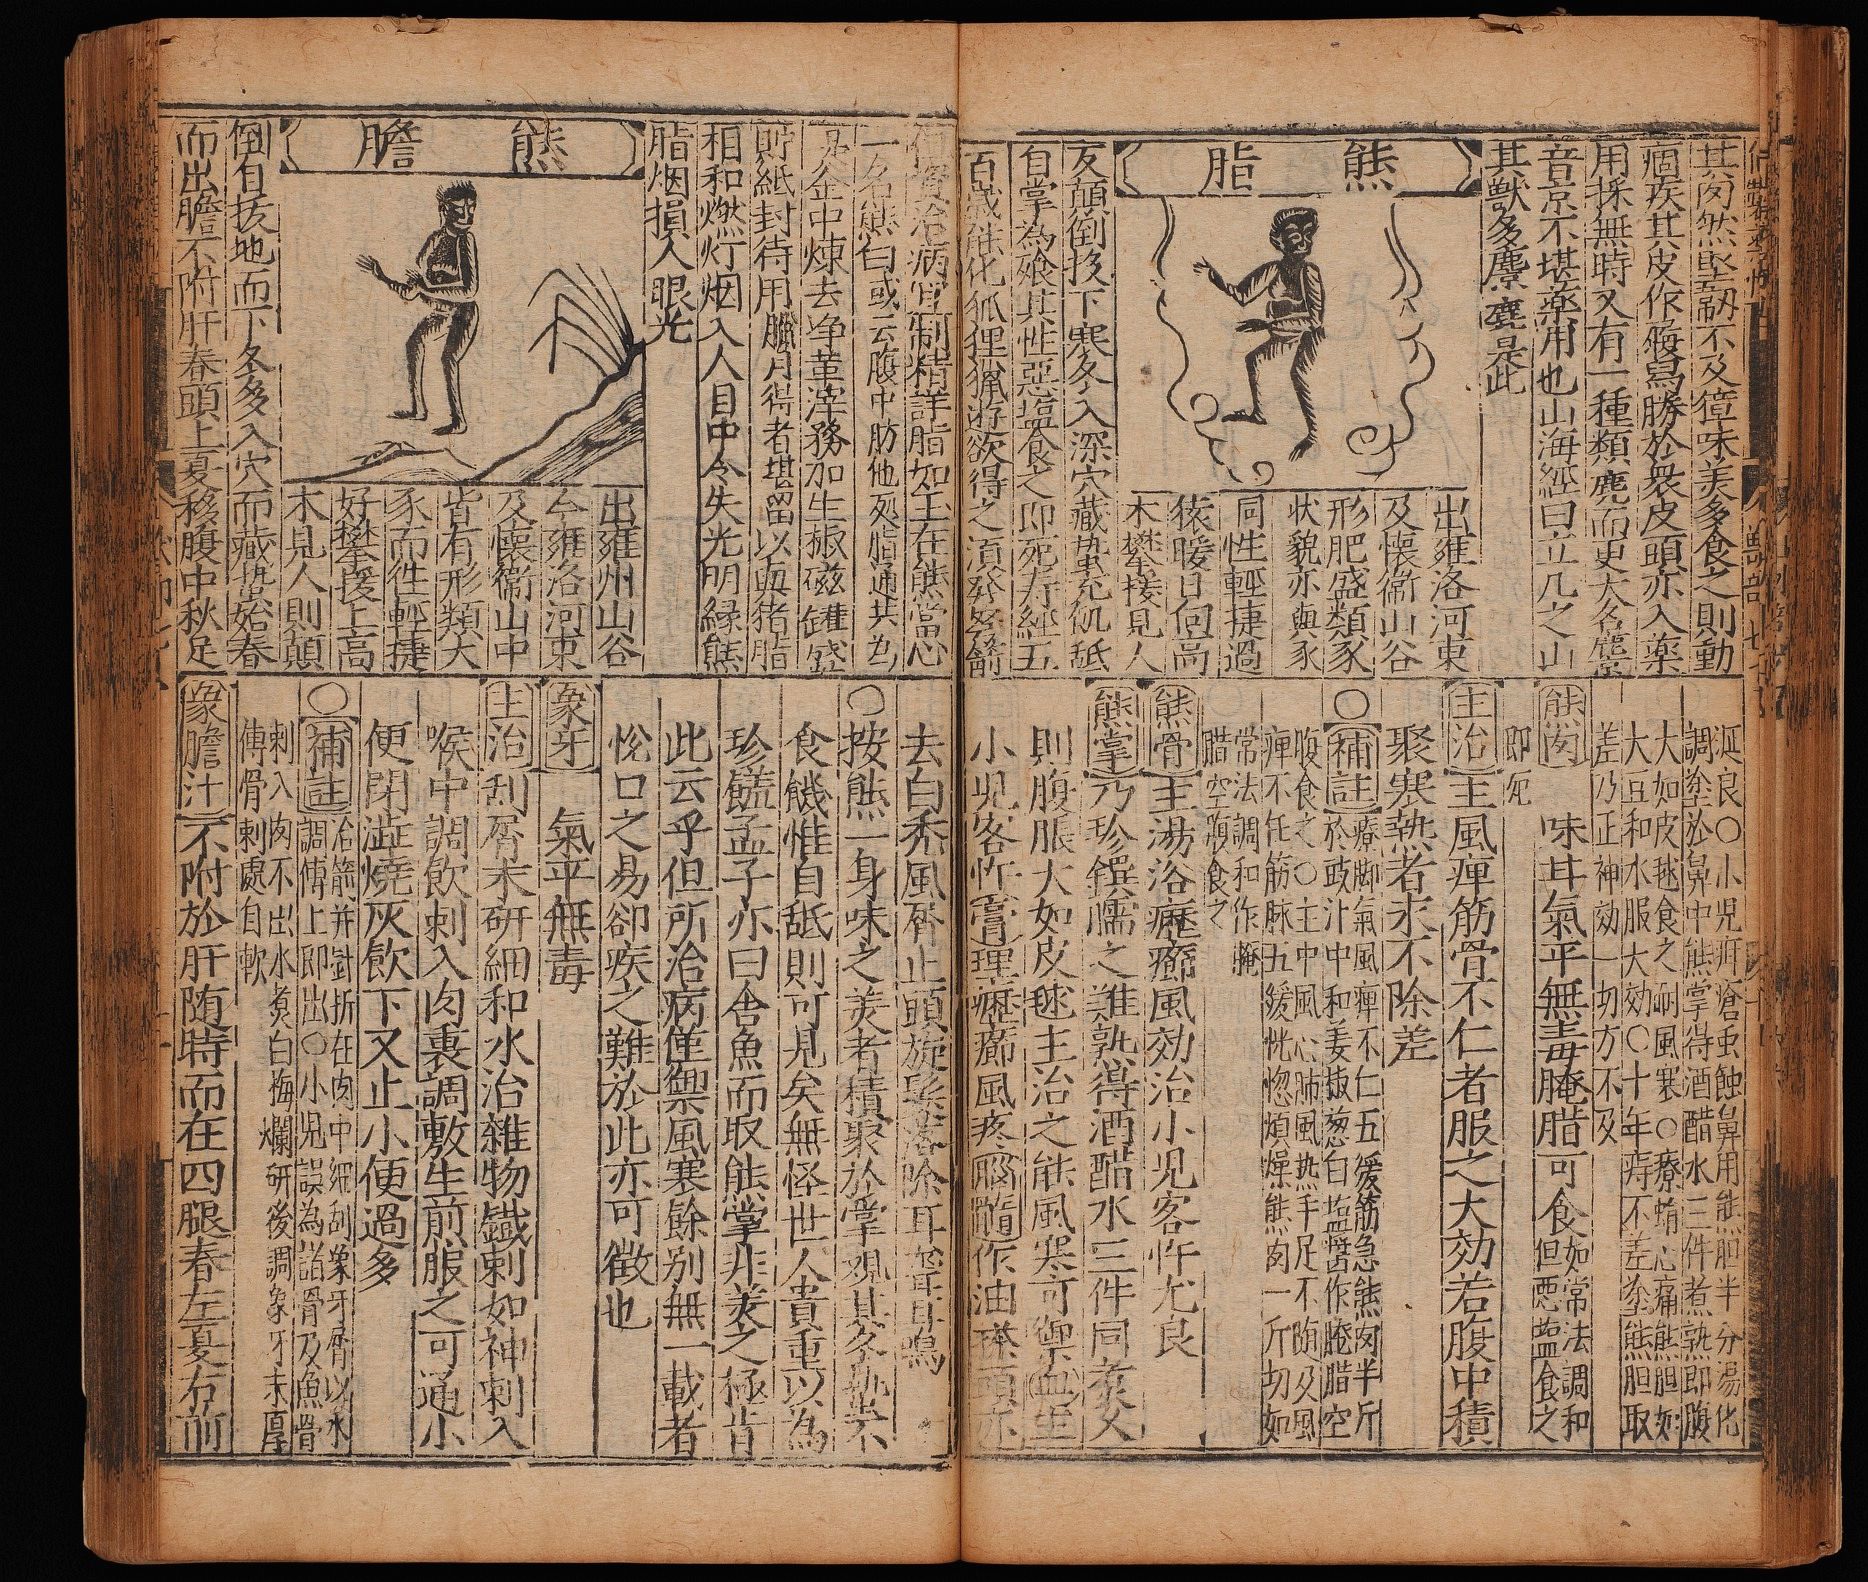 其肉然堅韌不及獐味美多食之則動
痼疾其皮作履舄勝於衆皮頭亦入藥
用採無時又有一種類麂而更大名麖
音京不堪藥用也山海經曰立几之山
其獸多麖麈是此
熊脂
出雍洛河東
及懷衞山谷
形肥盛類豕
狀貌亦與豕
同性輕捷過
猿暖日向高
木攀援見人
友顛倒投下寒冬入深穴藏蟄充飢舐
自掌為飱其性惡塩食之即死有經五
百歲能化狐狸獵游欲得之湏發弩箭
治病宜制精詳脂如玉在熊當心
一名熊白或云腹中肪他処脂通共為
金中煉去净革滓務加生椒磁罐盛
貯紙封待用臘月得者堪留以與猪脂
相和燃灯烟入人目中令失光明縁熊
脂烟損人眼光
熊膽
出雍州山谷
今雍洛河東
及懷衞山中
皆有形類大
豕而性輕捷
好攀援上高
木見人則顛
倒自投地而下冬多入穴而藏蟄始春
而出膽不附肝春頭上夏移腹中秋足
涎良○小児疳瘡虫蝕鼻用熊胆半分湯化
調塗於鼻中熊掌得酒醋水三件煮熟即腹
大如皮毬食之耐風寒○療蛕心痛熊胆如
大豆和水服大効○十年痔不差塗熊胆取
差乃正神効一切方不及
熊肉 味耳氣平無毒腌腊可食如常法調和但悪塩食之
即死
主治主風痺筋骨不仁者服之大効若腹中積
聚寒熱者求不除差
○補註療脚氣風痺不仁五緩筋急熊肉半斤
於豉汁中和姜椒葱白塩醬作腌腊空
腹食之○主中風心肺風热手足不随及風
痺不任筋脉五緩恍惚煩燥熊肉一斤切如
常法調和作腌
腊空腹食之
熊骨主湯浴歷癤風効治小児客忤尤良
熊掌乃珍饌臑之難熟得酒醋水三件同煮久
則腹脹大如皮毬主治之能風寒可禦血主
小児客忤膏理歷癤風疼腦髓作油搽頭亦
去白禿風屑止頭旋髮落除耳聾耳鳴
○按熊一身味之美者積聚於掌观其冬蟄不
食饑惟自舐則可見矣無怪世人貴重以為
珍饈孟子亦曰舎魚而取熊掌非美之極肯
此云乎但所治病僅禦風寒餘别無一載者
悦口之易卻疾之難於此亦可徴也
象牙 氣平無毒
主治刮屑末研細和水治雜物鐵刺如神刺入
喉中調飲刺入肉裏調敷生煎服之可通小
便閉澁燒灰飲下又止小便過多
○補註治箭并針折在肉中細刮象牙屑以水
調傅上即出○小児誤為諸骨及魚骨
刺入肉不出水煮白梅爛研後調象牙末厚
傅骨刺處自軟
象膽汁不附於肝随時而在四腿春左夏右前